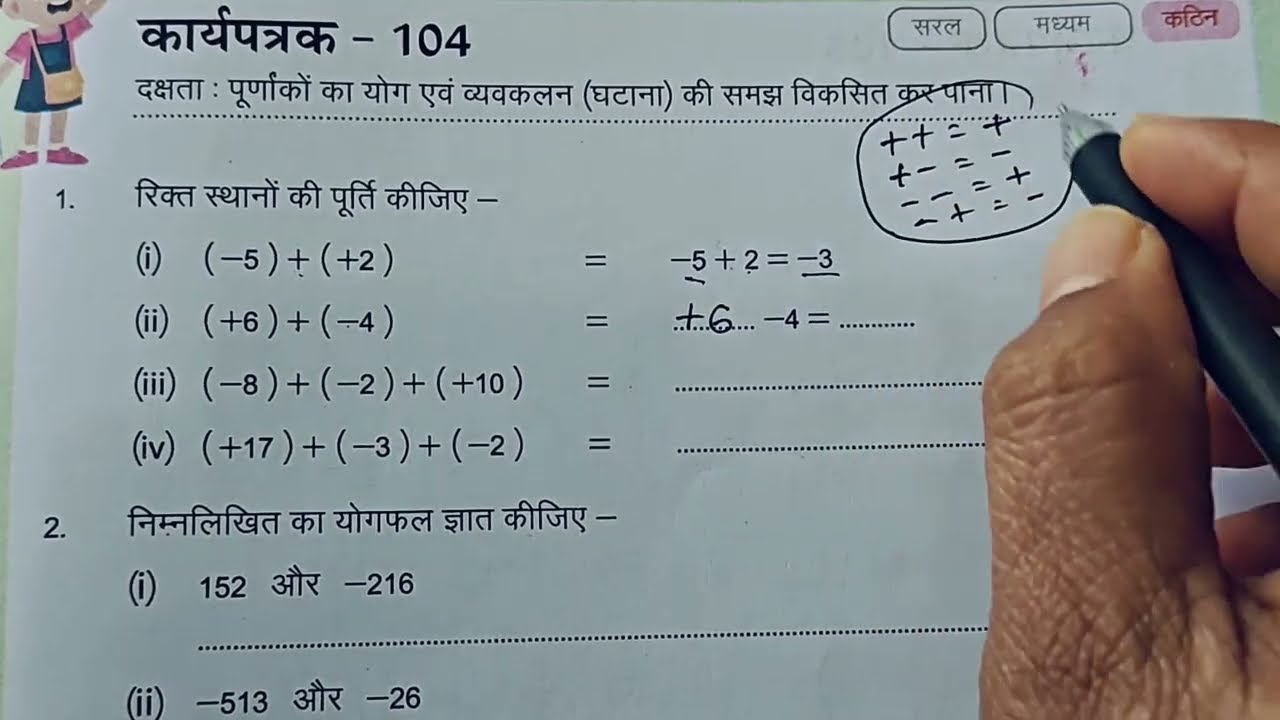 कार्यपत्रक – 104
सरल
मध्यम
कठिन
दक्षता : पूर्णाकों का योग एवं व्यवकलन (घटाना) की समझ विकसित कर पाना।
+ + = +
+ - = -
- - = +
- + = -
1. रिक्त स्थानों की पूर्ति कीजिए –
(i) (−5) + (+2) = −5 + 2 = −3
(ii) (+6) + (−4) = +6 −4 = ............
(iii) (−8) + (−2) + (+10) =
(iv) (+17) + (−3) + (−2) =
2. निम्नलिखित का योगफल ज्ञात कीजिए –
(i) 152 और −216
(ii) −513 और −26